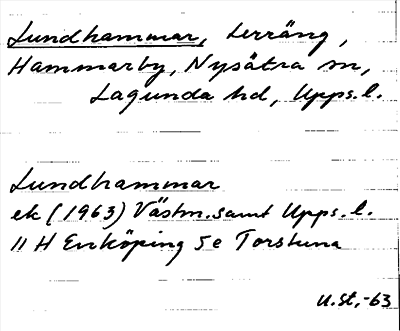 Lundhammar, terräng,
Hammarby, Nysätra sn,
Lagunda hd, Upps.l.
Lundhammar
ek (1963) Västm. samt Upps. l.
11 H Enköping 5e Torstuna
u.st,-63